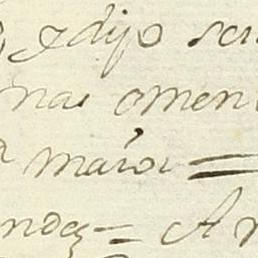 y dijo ser
mas omen
maior =
ndez = A